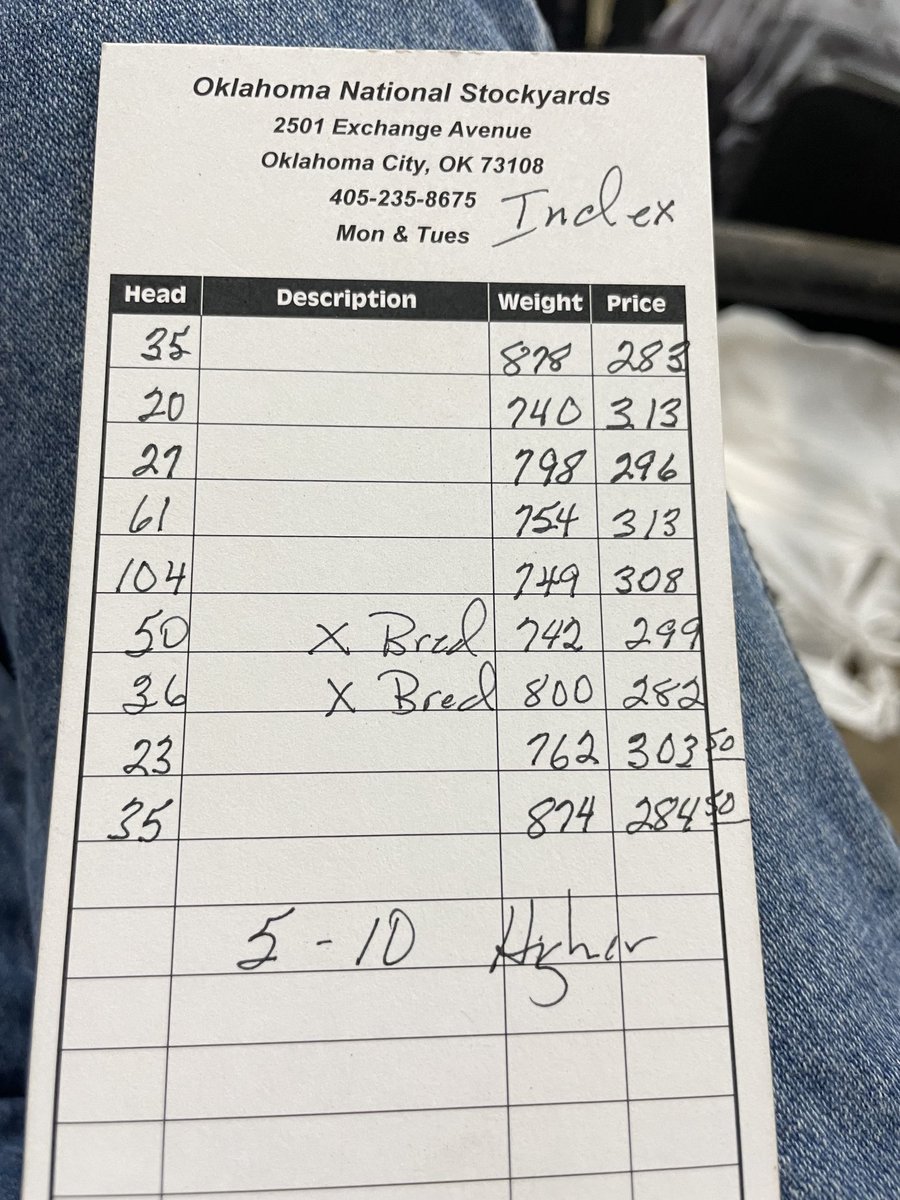 Oklahoma National Stockyards
2501 Exchange Avenue
Oklahoma City, OK 73108
405-235-8675
Mon & Tues Index
Head Description Weight Price
35 878 283
20 740 313
27 798 296
61 754 313
104 749 308
50 X Bred 742 299
36 X Bred 800 282
23 762 303 50
35 874 284 50
5 - 10 Higher